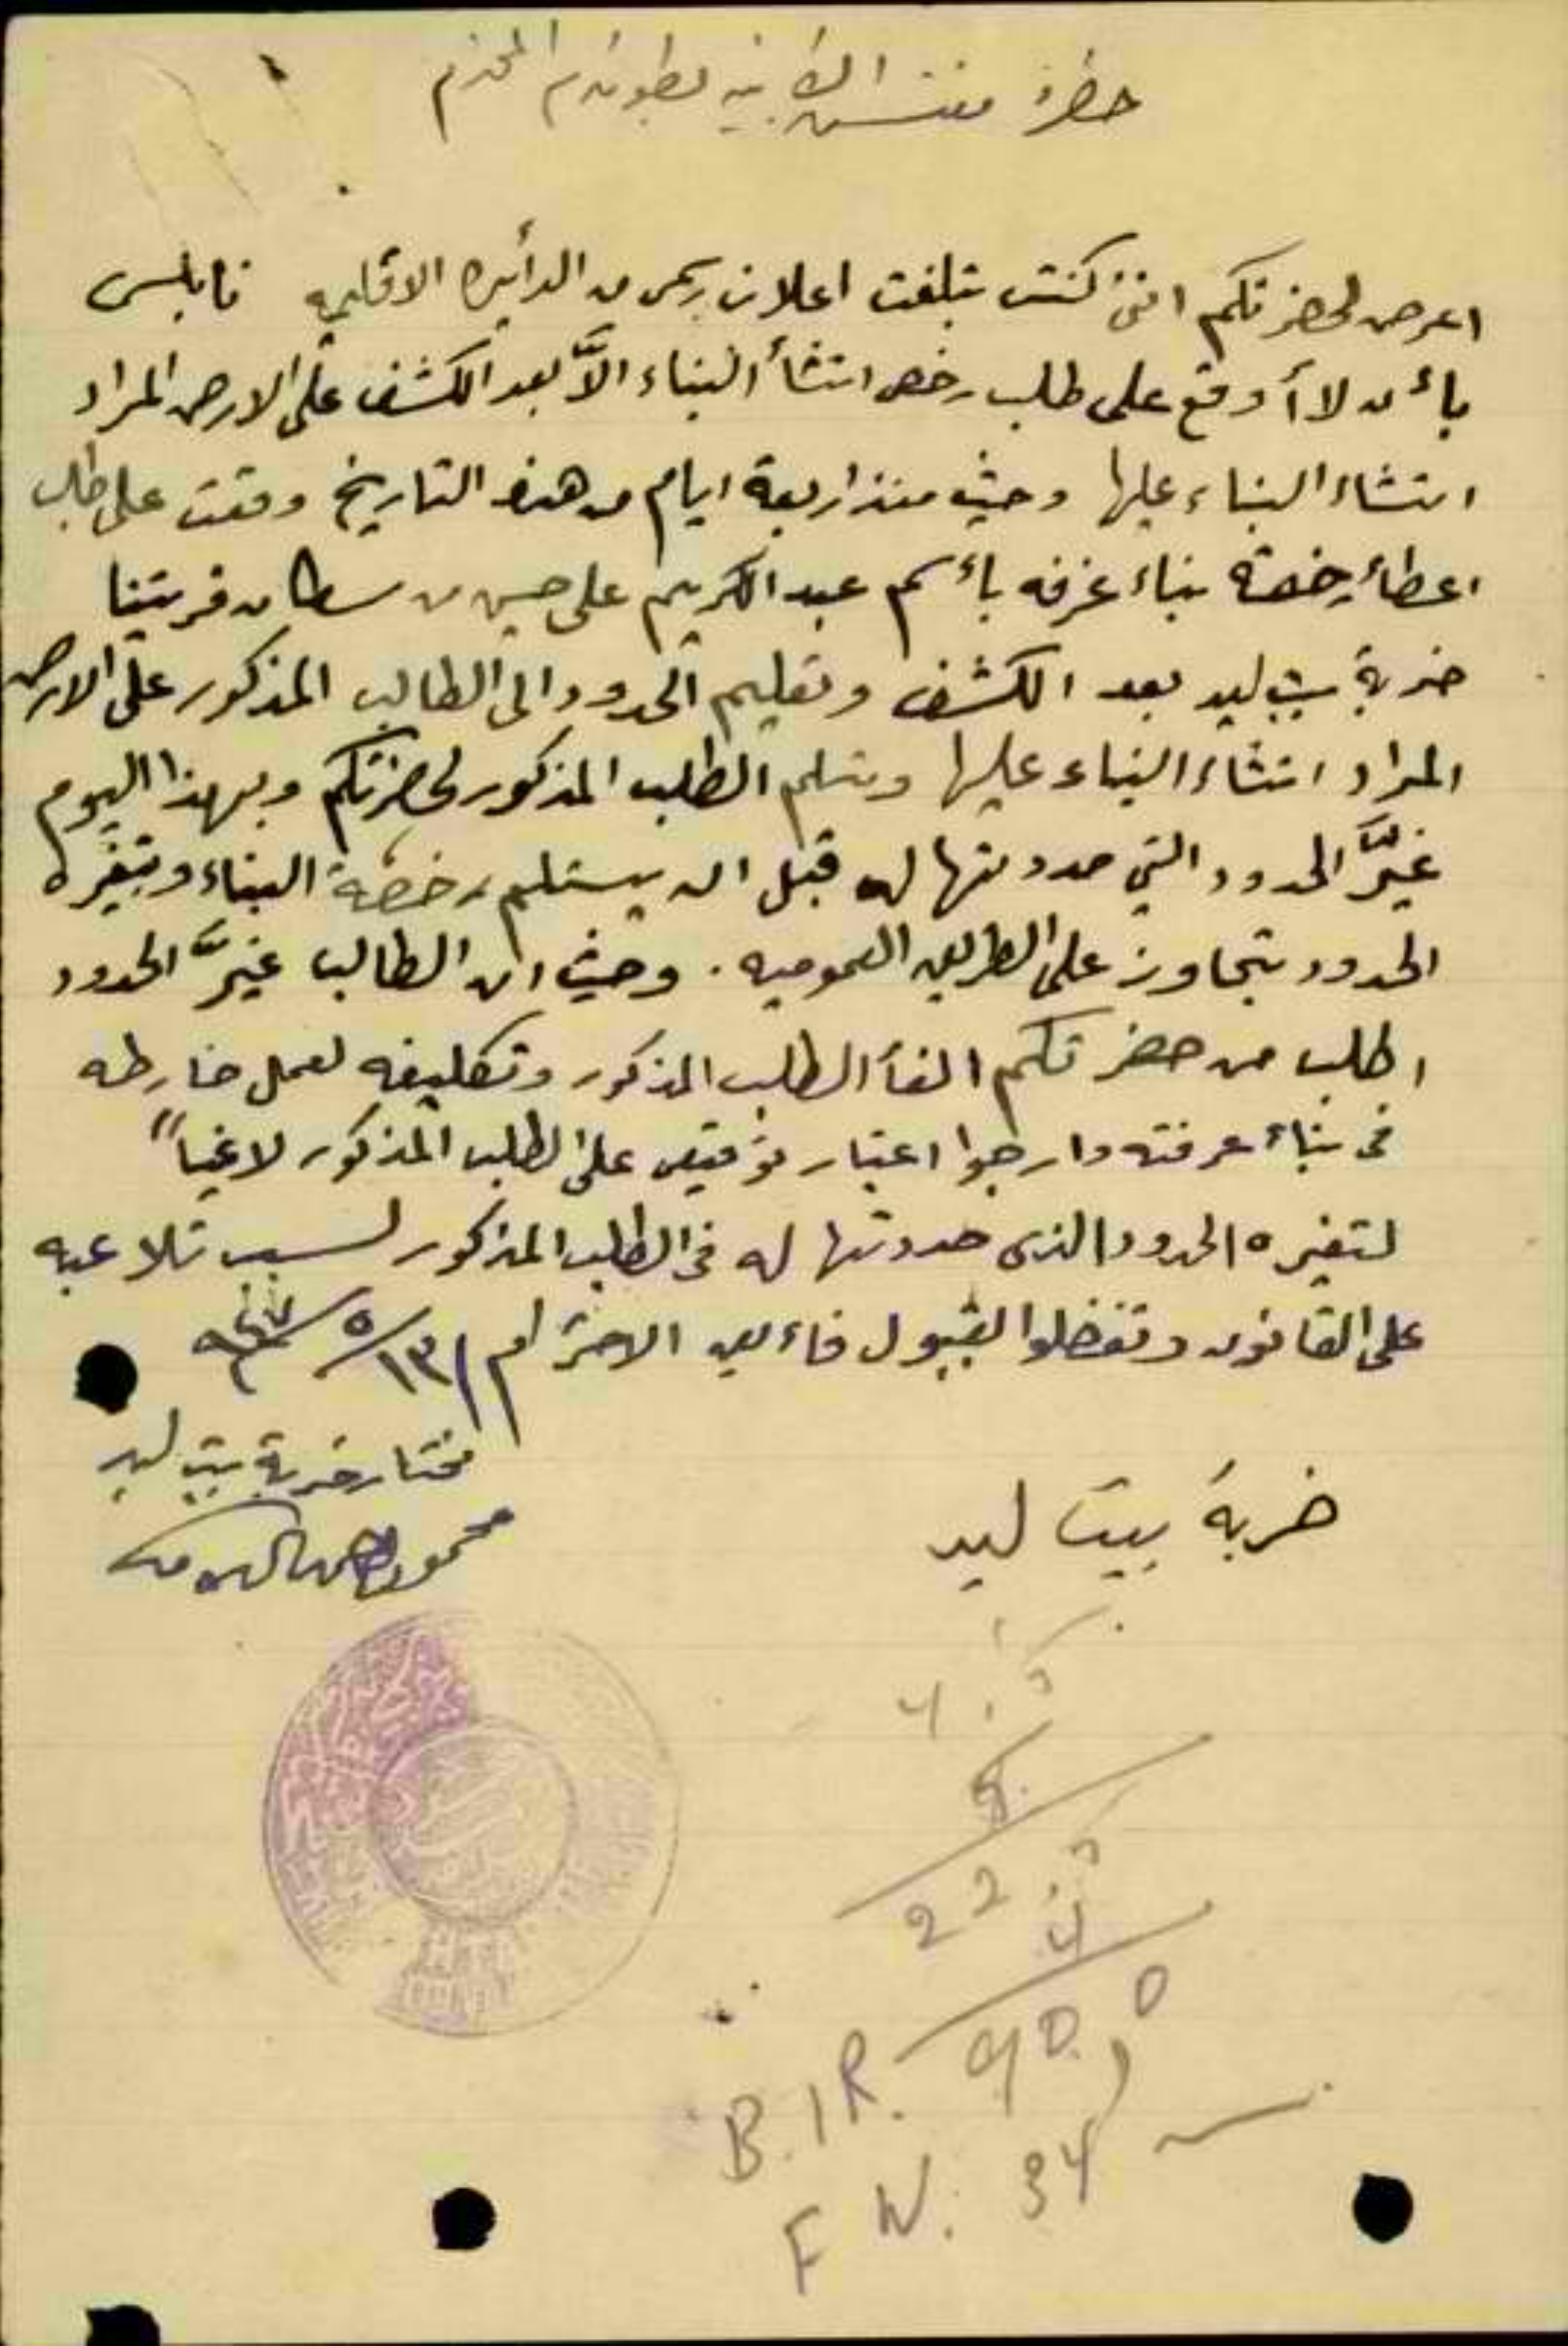 حضرة مفتش الابنيه بطولكرم المحترم
اعرض لحضرتكم انني كنت تبلغت اعلان رسمي من الدأيره الاقليميه نابلس
بأن لا أوقع على طلب رخص انشأ البناء الاَّ بعد الكشف على الارض المراد
انشاء البناء عليها وحيث منذ اربعة ايام من هذا التاريخ وقعت على طلب
اعطأ رخصة بناء غرفه بأسم عبد الكريم علي حسين من سكان قريتنا
خربة بيت ليد بعد الكشف وتعليم الحدود الى الطالب المذكور على الارض
المراد انشاء البناء عليها وتسلم الطلب المذكور لحضرتكم وبهذا اليوم
غيَّر الحدود التي حددتها له قبل ان يستلم رخصة البناء وبتغيره
الحدود بتجاوز على الطريق العموميه . وحيث ان الطالب غيَّر الحدود
اطلب من حضرتكم الغأ الطلب المذكور وتكليفه لعمل خارطه
في بناء غرفته وارجوا اعتبار توقيعي على الطلب المذكور لاغياً
لتغيره الحدود الذي حددتها له في الطلب المذكور لسبب تلاعبه
على القانون وتفضلوا بقبول فائق الاحترام ١٣/٥/٩٤٧
مختار خربة بيت ليد
محمود
خربة بيت ليد
5
22
4
B.I.R. 90,0
F W. 34